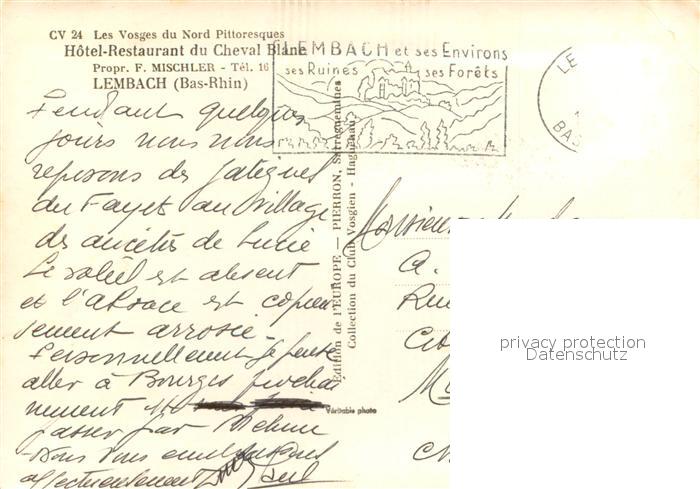 CV 24 Les Vosges du Nord Pittoresques
Hôtel-Restaurant du Cheval Blanc
Propr. F. MISCHLER - Tél. 16
LEMBACH (Bas-Rhin)
LEMBACH et ses Environs
ses Ruines ses Forêts
LE
BAS
Pendant quelques
jours nous nous
reposons des fatigues
du Fayet au village
des ancêtres de Lucie
Le soleil est absent
et l'alsace est copieu
sement arrosée.
Personnellement je pense
aller à Bourges prochai
nement
passer par Mehun
Nous vous embrassons
affectueusement Paul
Edition de l'EUROPE — PIERRON, Sarreguemines
Collection du Club Vosgien - Haguenau
Véritable photo
Monsieur
privacy protection
Datenschutz